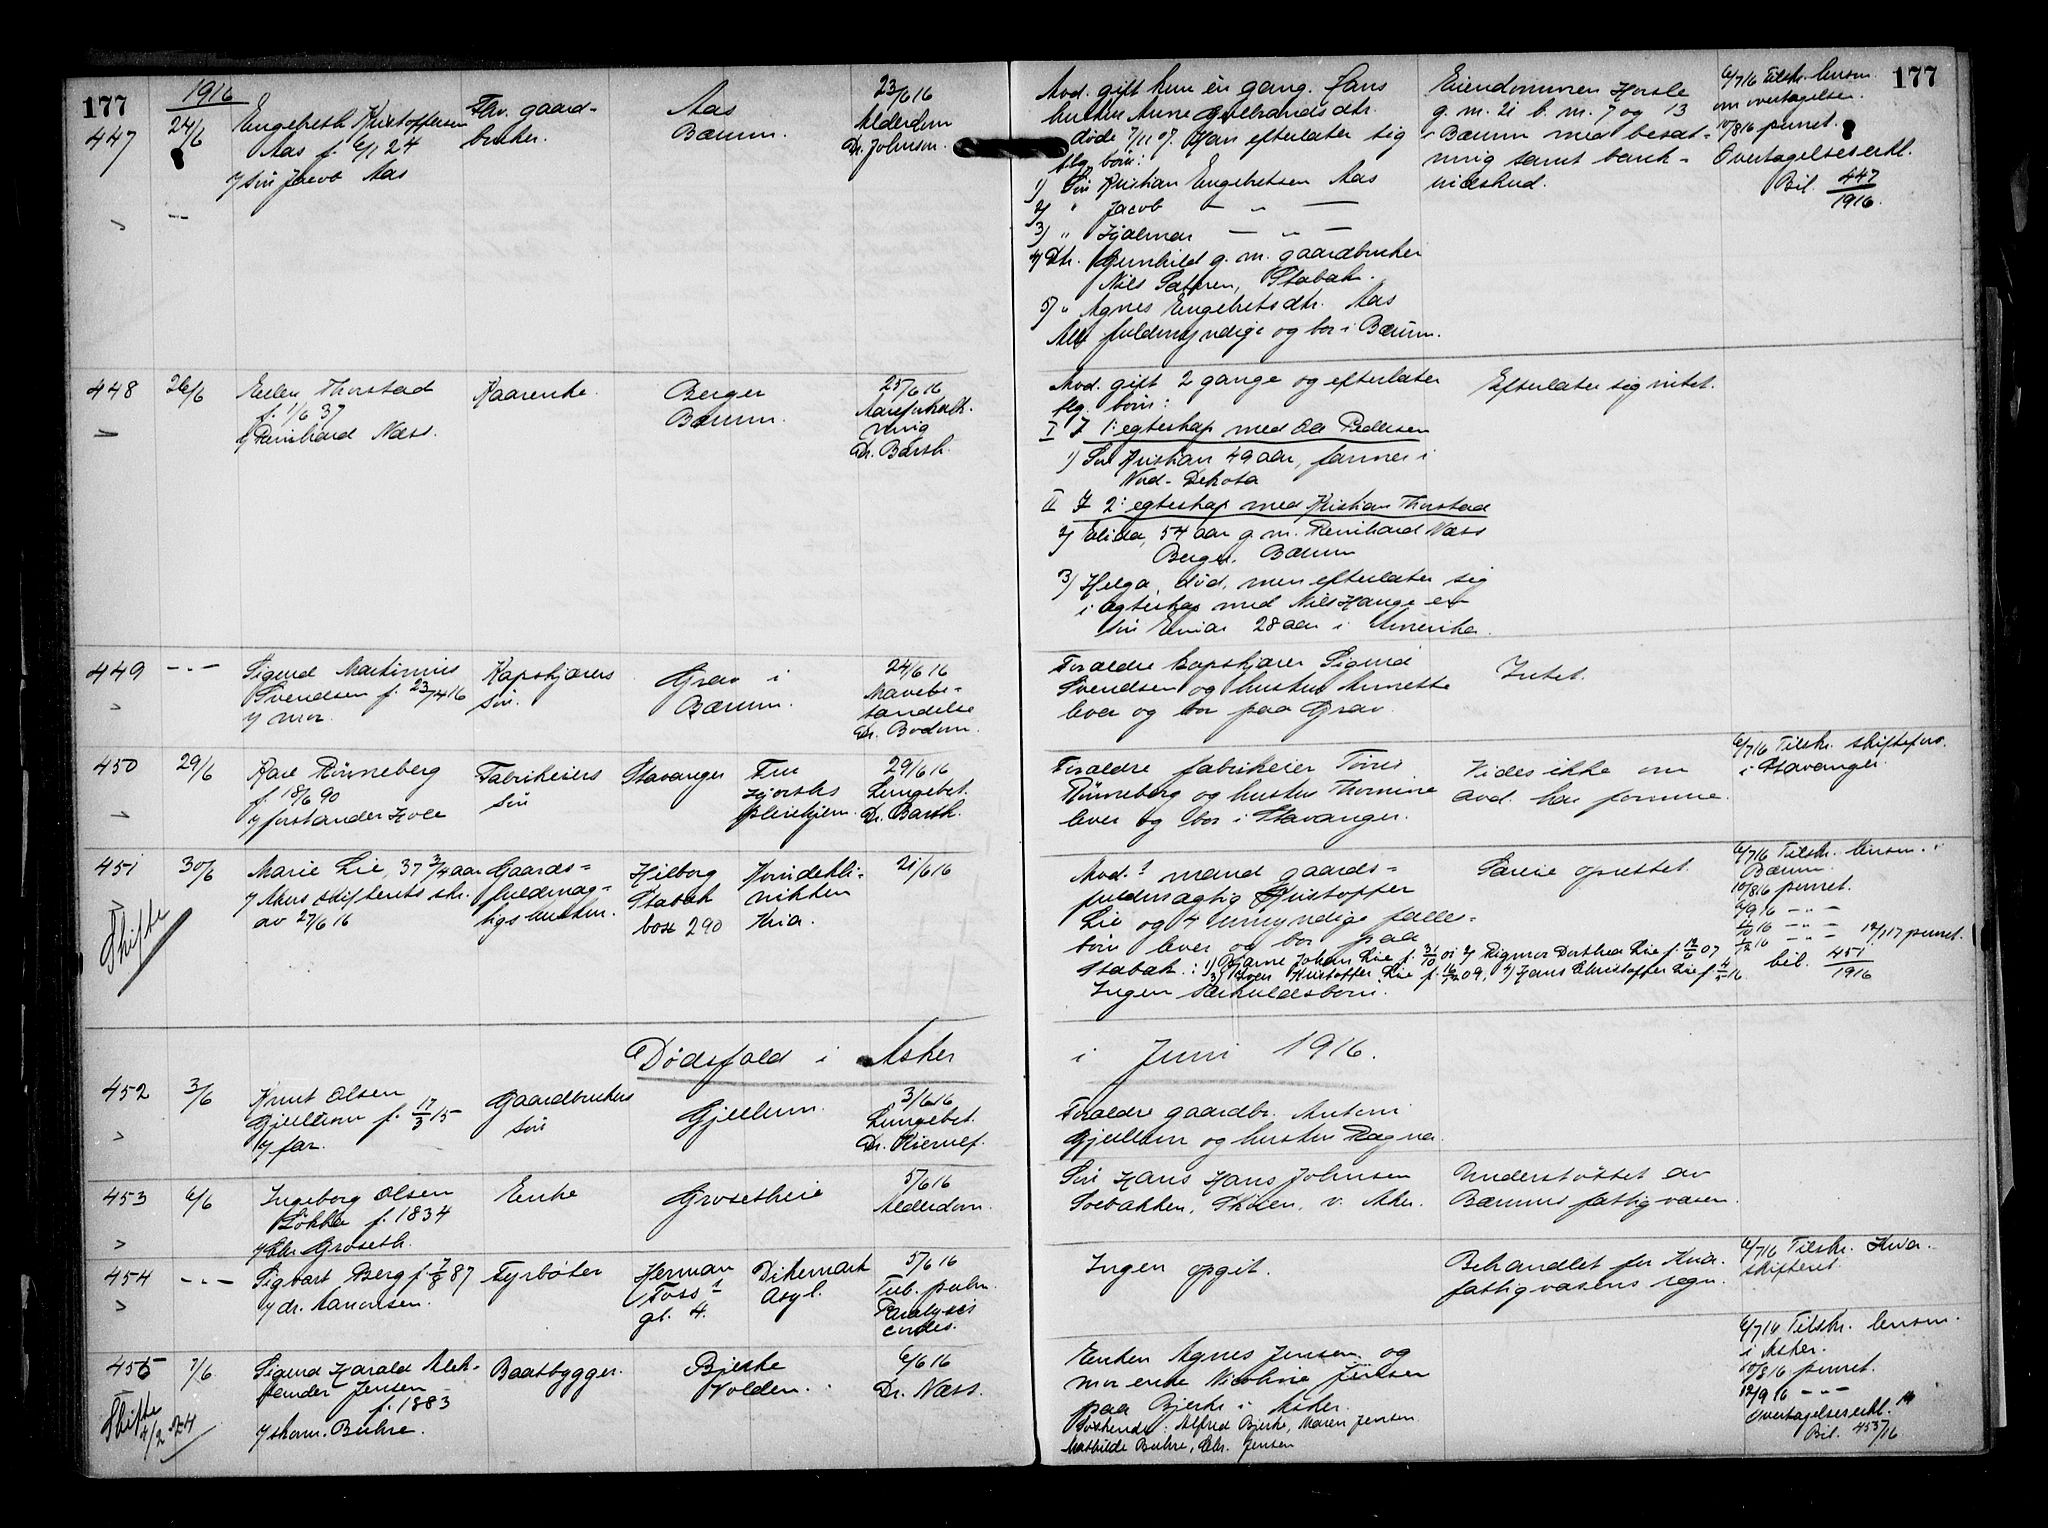 177
1916
447 24/6 Engebreth Kristoffersen Fhv. gaard- Aas 23/6 16
Aas f. 6/1 24 bruker. Bærum. Alderdom
v/ sön Jacob Aas Dr. Johnson.
448 26/6 Thorstad Kaarenke. Berger 25/6 16
f. 1/6 37 Bærum. Aareforkalk-
v/ Reinhard Næss. ning
Dr. Barth.
449 -"- Sigurd Martinius Kapskjærers Grav i 24/6 16
Svendsen f. 23/4 16 sön. Bærum. Mavebe-
v/ mor. tændelse
Dr. Bodom.
450 29/6 Karl Rönneberg Fabrikeiers Stavanger Fru 29/6 16
f. 18/6 90 sön Hjorths Lungebet.
v/ forstander Hole pleiehjem. Dr. Barth.
451 30/6 Marie Lie, 37 3/4 aar Gaards- Hilborg Kvindekli- 21/6 16
v/ Akers skifterets skr. fuldmæg- Stabæk nikken
av 27/6 16 tigs hustru. box 290 Kria.
Skifte
Dödsfald i Asker
452 3/6 Knut Olsen Gaardbrukers Gjellum. 3/6 16
Gjellum f. 17/3 15 sön Lungebet.
v/ far. Dr. Kiernef.
453 6/6 Ingeborg Olsen Enke Grosetheie 5/6 16
Lökka f. 1834 Alderdom.
v/ Chr. Groseth.
454 -"- Sigvart Berg f. 7/8 87 Fyrböter Herman Dikemark 5/6 16
v/ dr. Foss's Asyl. Tub. pulm.
gt. 4. Paralysis
cordis.
455 7/6 Sigurd Harald Alek- Baatbygger. Bjerke 6/6 16
sander Jensen Volden. Dr. Næss.
f. 1883
v/ skom. Buhre.
Skifte
4/2 24
177
Avd. gift kun én gang. Hans Eiendommen Horsle 6/7 16 Tilskr. lensm.
hustru Anne Gulbrandsdtr. g. nr. 21 b. nr. 7 og 13 om overtagelse.
döde 7/11 07. Han efterlater sig i Bærum med besæt- 10/8 16 purret.
flg. börn: ning samt bank- Overtagelseserkl.
1) Sön Kristian Engebretsen Aas indskud. Bil. 447/1916.
2) " Jacob — " —
3) " Hjalmar — " —
4) Dtr. Gunhild g. m. gaardbruker
Nils Sætren, Stabæk.
5) " Agnes Engebretsdtr. Aas
Alle fuldmyndige og bor i Bærum.
Avd. gift 2 gange og efterlater Efterlater sig intet.
flg. börn:
I I 1: egteskap med Ole Pedersen
1) Sön Kristian 49 aar, farmer i
Nord-Dekota
II I 2: egteskap med Kristian Thorstad
2) Elida, 54 aar g. m. Reinhard Næss
Berger, Bærum
3) Helga, död, men efterlater sig
i egteskap med Nils Hauge en
sön Einar 28 aar i Amerika.
Foraldre kapskjærer Sigurd Intet.
Svendsen og hustru Annette
lever og bor paa Grav.
Foraldre fabrikeier Tönnes Vides ikke om 6/7 16 Tilskr. skifteforv.
Rönneberg og hustru Thomine avd. har formue. i Stavanger.
lever og bor i Stavanger.
Avd.s mand gaards- Særeie oprettet. 6/7 16 Tilskr. lensm. i
fuldmægtig Kristoffer Bærum.
Lie og 4 umyndige fælles- 10/8 16 purret.
börn lever og bor paa 6/9 16 -"-
Stabæk: 1) Bjarne Johan Lie f. 31/10 01 2) Rigmor Dorthea Lie f. 12/6 07 1/10 16 -"-
3) Kristoffer Lie f. 16/12 09, 4) Hans Christopher Lie f. 4/5 16. 1/12 16 -"- 12/1 17 purret.
Ingen særkuldsbörn. bil. 451/1916
i Juni 1916.
Foraldre gaardbr. Antoni
Gjellum og hustru Ragna.
Sön Hans Hans Johnsen Understöttet av
Solbakken, Sköien, v. Aker. Bærums fattigvæsen.
Ingen opgit. Behandlet for Kria. 6/7 16 Tilskr. Kria.
fattigvæsens regn. skifteret.
Enken Agnes Jensen og 6/7 16 Tilskr. lensm.
mor enke Nicoline Jensen i Asker.
paa Bjerke i Asker. 10/8 16 purret.
Söskende: Alfred Bjerke, Maren Jensen 12/9 16 -"-
Mathilde Buhre, Chr. Jensen Overtagelseserkl.
Bil. 455/16